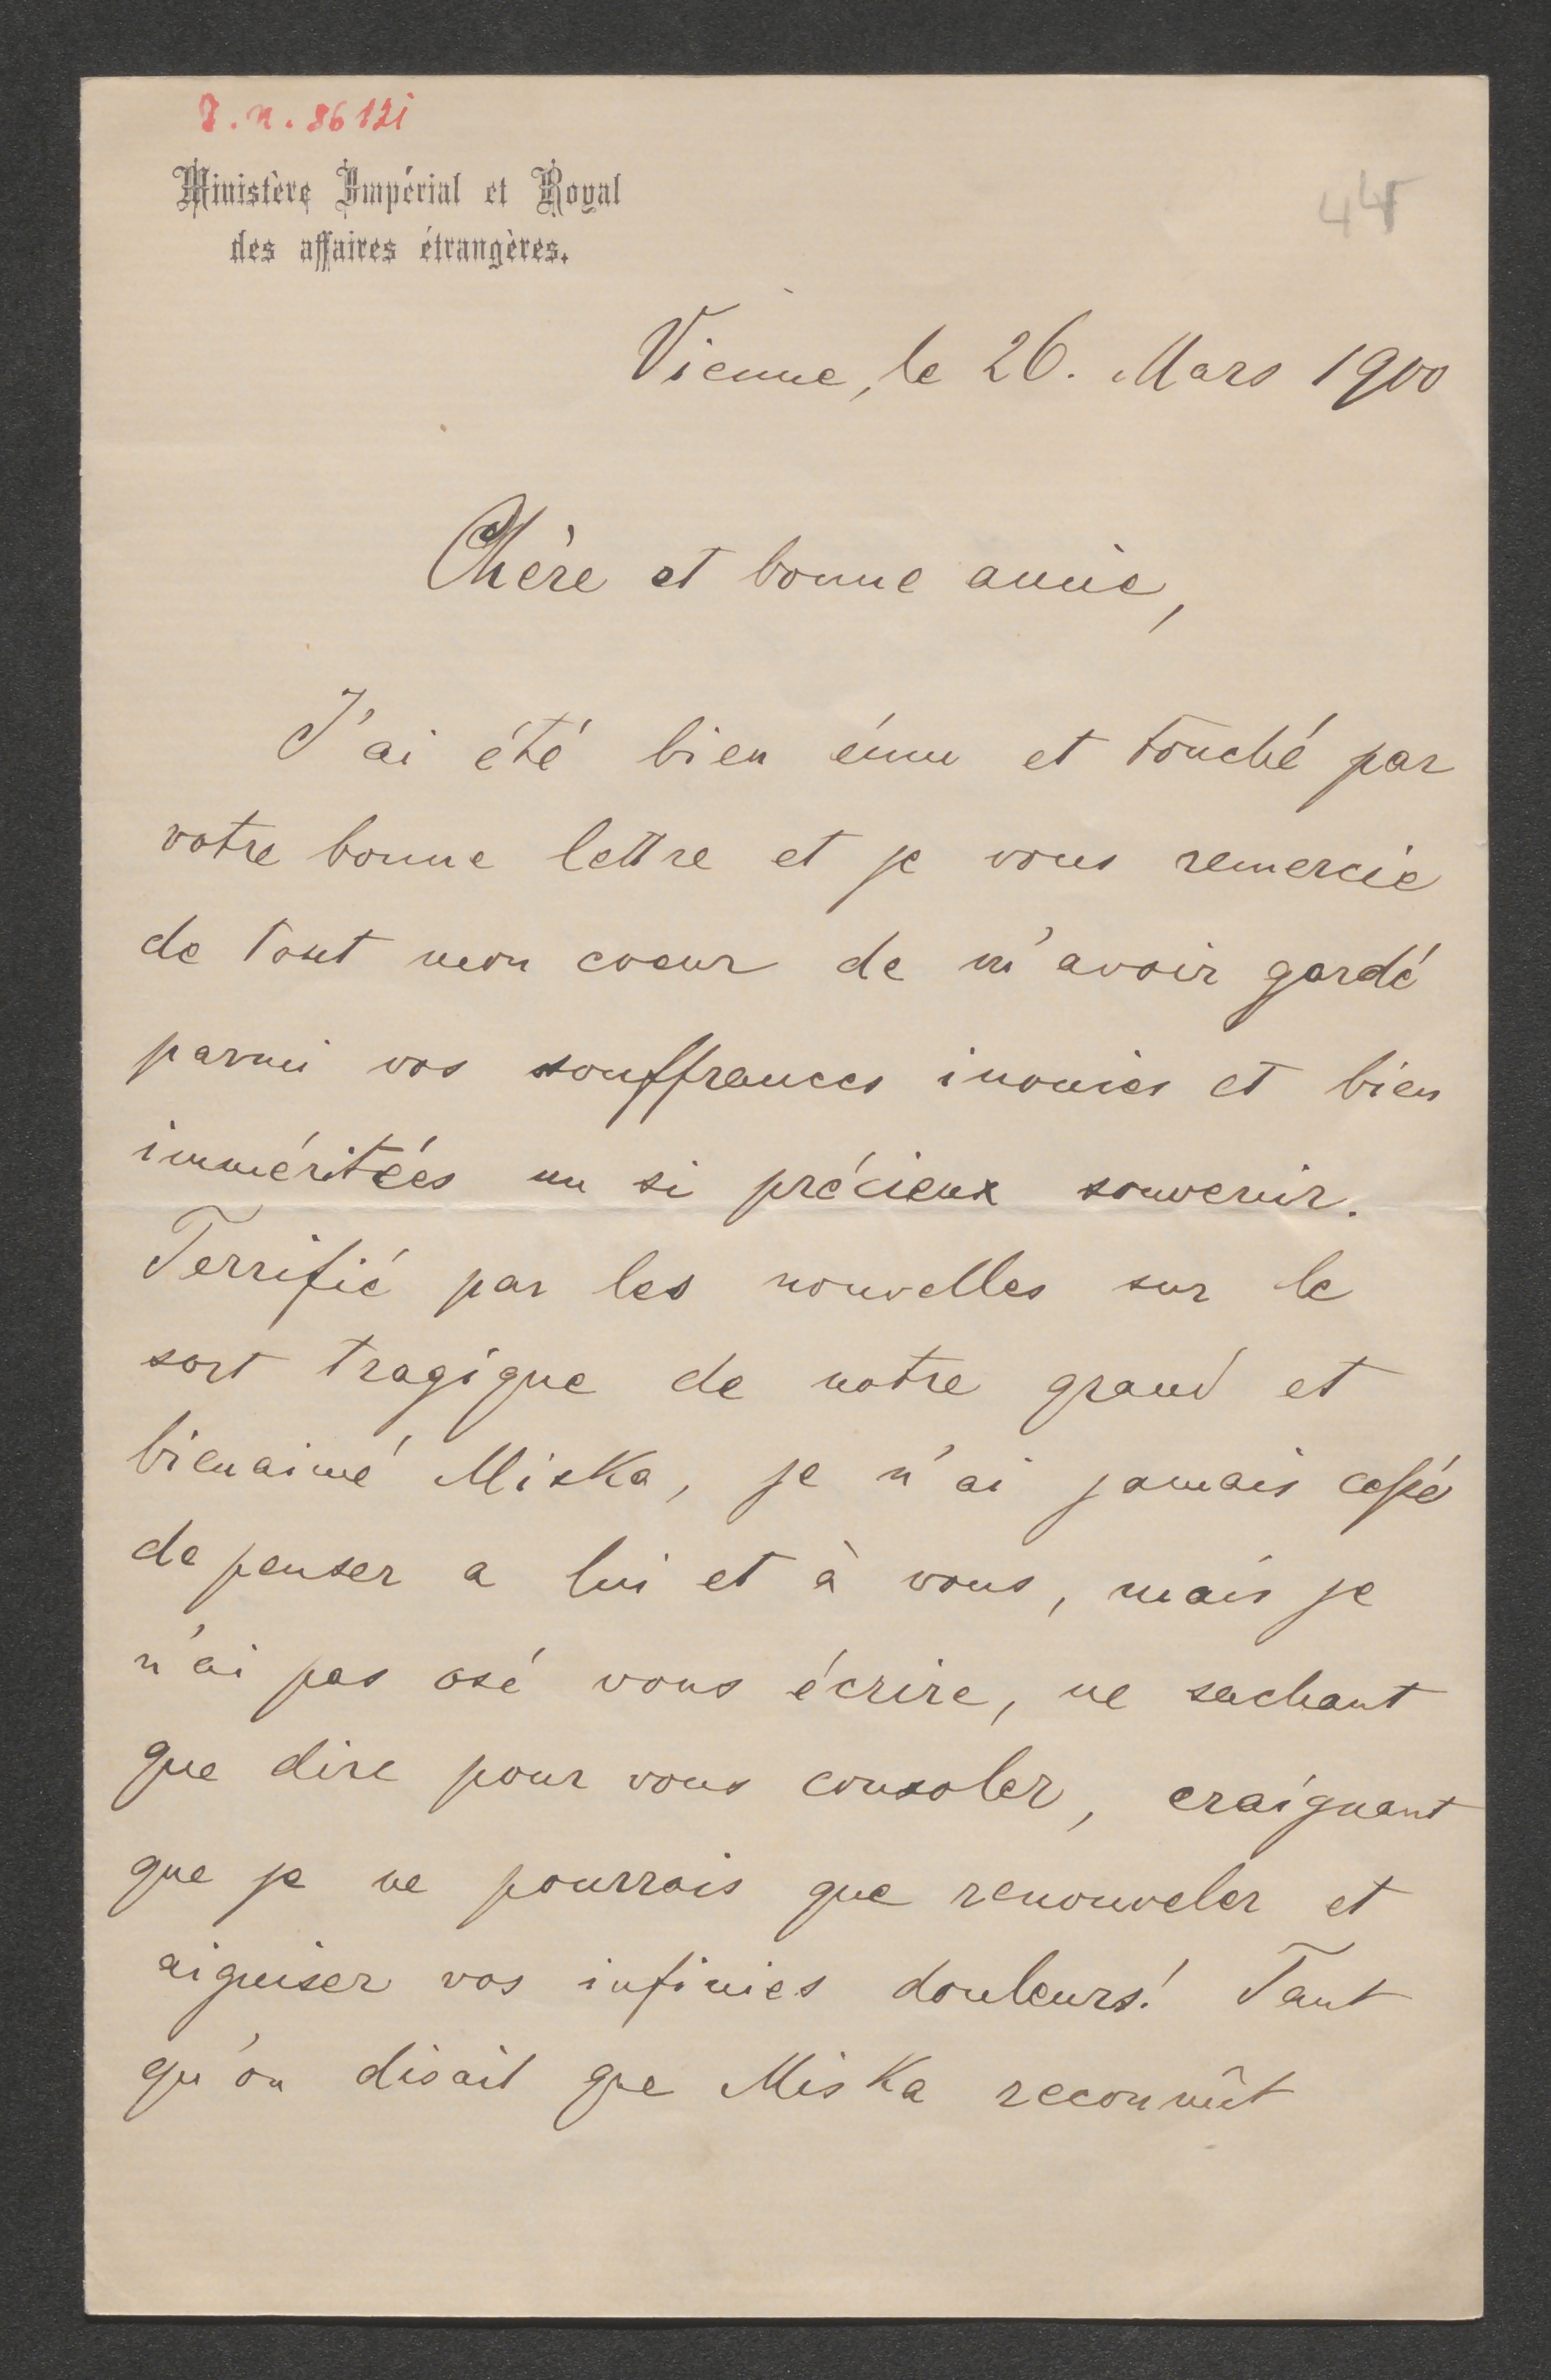 J.n. 86121
Ministère Impérial et Royal
des affaires étrangères.
Vienne, le 26. Mars 1900
Chère et bonne amie,
J'ai été bien ému et touché par
votre bonne lettre et je vous remercie
de tout mon coeur de m'avoir gardé
parmi vos souffrances inouies et bien
imméritées un si précieux souvenir.
Terrifié par les nouvelles sur le
sort tragique de notre grand et
bienaimé Miska, je n'ai jamais cessé
de penser a lui et à vous, mais je
n'ai pas osé vous écrire, ne sachant
que dire pour vous consoler, craignant
que je ne pourrais que renouveler et
aiguiser vos infinies douleurs! Tant
qu'on disait que Miska reconnût